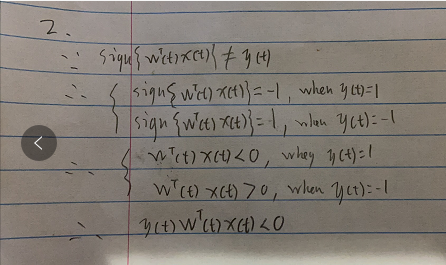 2.
∵ sign{wᵀ(t)x(t)} ≠ y(t)
∴ { sign{wᵀ(t)x(t)} = -1, when y(t)=1
sign{wᵀ(t)x(t)} = 1, when y(t)=-1
∴ { wᵀ(t)x(t)<0, when y(t)=1
wᵀ(t)x(t)>0, when y(t)=-1
∴ y(t)wᵀ(t)x(t)<0